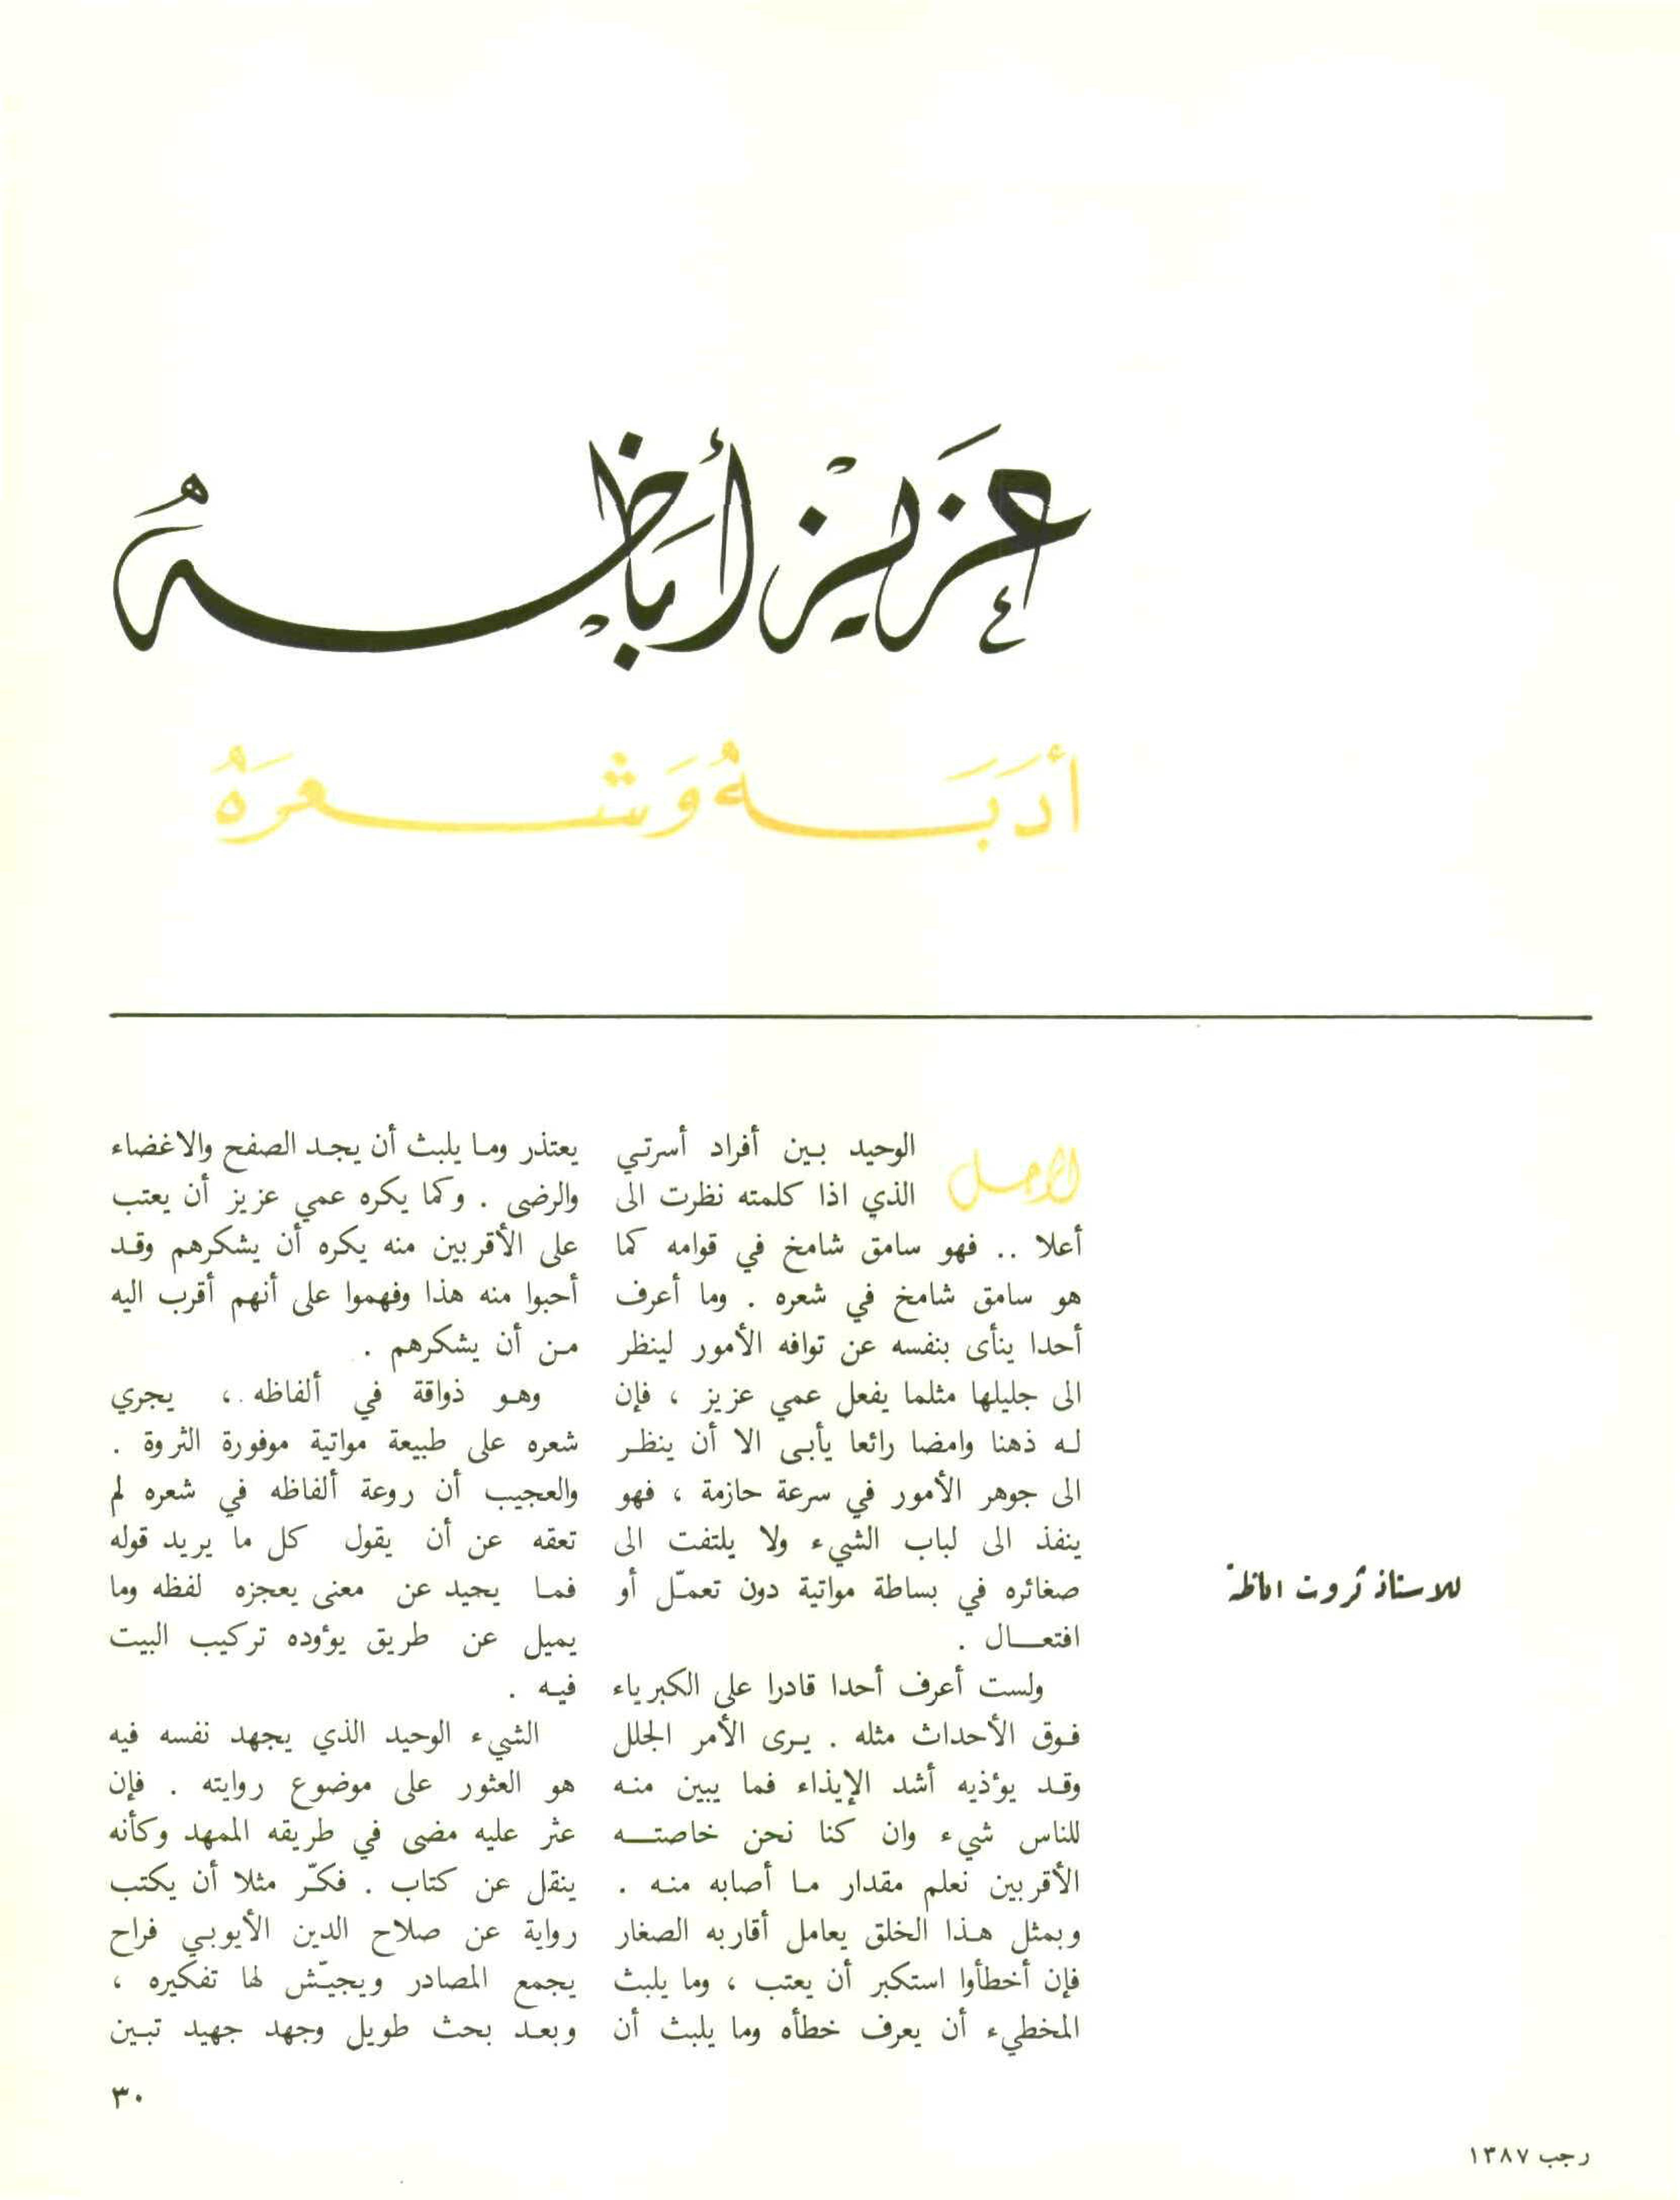 عَزيز أباظه
أدَبَهُ وَشعرَهُ
للاستاذ ثروت اباظة
الرجل الوحيد بين أفراد أسرتي
الذي اذا كلمته نظرت الى
أعلا .. فهو سامق شامخ في قوامه كما
هو سامق شامخ في شعره . وما أعرف
أحدا ينأى بنفسه عن توافه الأمور لينظر
الى جليلها مثلما يفعل عمي عزيز ، فإن
له ذهنا وامضا رائعا يأبى الا أن ينظر
الى جوهر الأمور في سرعة حازمة ، فهو
ينفذ الى لباب الشيء ولا يلتفت الى
صغائره في بساطة مواتية دون تعمّل أو
افتعال .
ولست أعرف أحدا قادرا على الكبرياء
فوق الأحداث مثله . يرى الأمر الجلل
وقد يؤذيه أشد الإيذاء فما يبين منه
للناس شيء وان كنا نحن خاصته
الأقربين نعلم مقدار ما أصابه منه .
وبمثل هذا الخلق يعامل أقاربه الصغار
فإن أخطأوا استكبر أن يعتب ، وما يلبث
المخطيء أن يعرف خطأه وما يلبث أن
يعتذر وما يلبث أن يجد الصفح والاغضاء
والرضى . وكما يكره عمي عزيز أن يعتب
على الأقربين منه يكره أن يشكرهم وقد
أحبوا منه هذا وفهموا على أنهم أقرب اليه
من أن يشكرهم .
وهو ذواقة في ألفاظه ، يجري
شعره على طبيعة مواتية موفورة الثروة .
والعجيب أن روعة ألفاظه في شعره لم
تعقه عن أن يقول كل ما يريد قوله
فما يحيد عن معنى يعجزه لفظه وما
يميل عن طريق يؤوده تركيب البيت
فيه .
الشيء الوحيد الذي يجهد نفسه فيه
هو العثور على موضوع روايته . فإن
عثر عليه مضى في طريقه الممهد وكأنه
ينقل عن كتاب . فكّر مثلا أن يكتب
رواية عن صلاح الدين الأيوبي فراح
يجمع المصادر ويجيّش لها تفكيره ،
وبعد بحث طويل وجهد جهيد تبين
٣٠
رجب ١٣٨٧